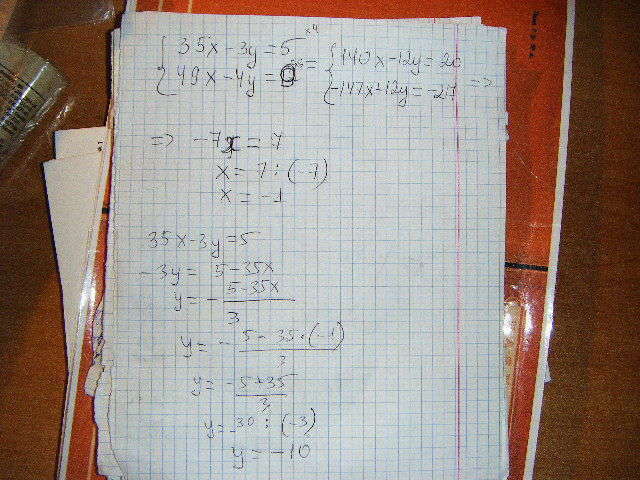 { 35x - 3y = 5 ×4
{ 49x - 4y = 9 = { 140x - 12y = 20
{ -147x + 12y = -27 =>
=> -7x = 7
x = 7 : (-7)
x = -1
35x - 3y = 5
-3y = 5 - 35x
y = - 5 - 35x / 3
y = - 5 - 35 · (-1) / 3
y = - 5 + 35 / 3
y = 30 : (-3)
y = -10